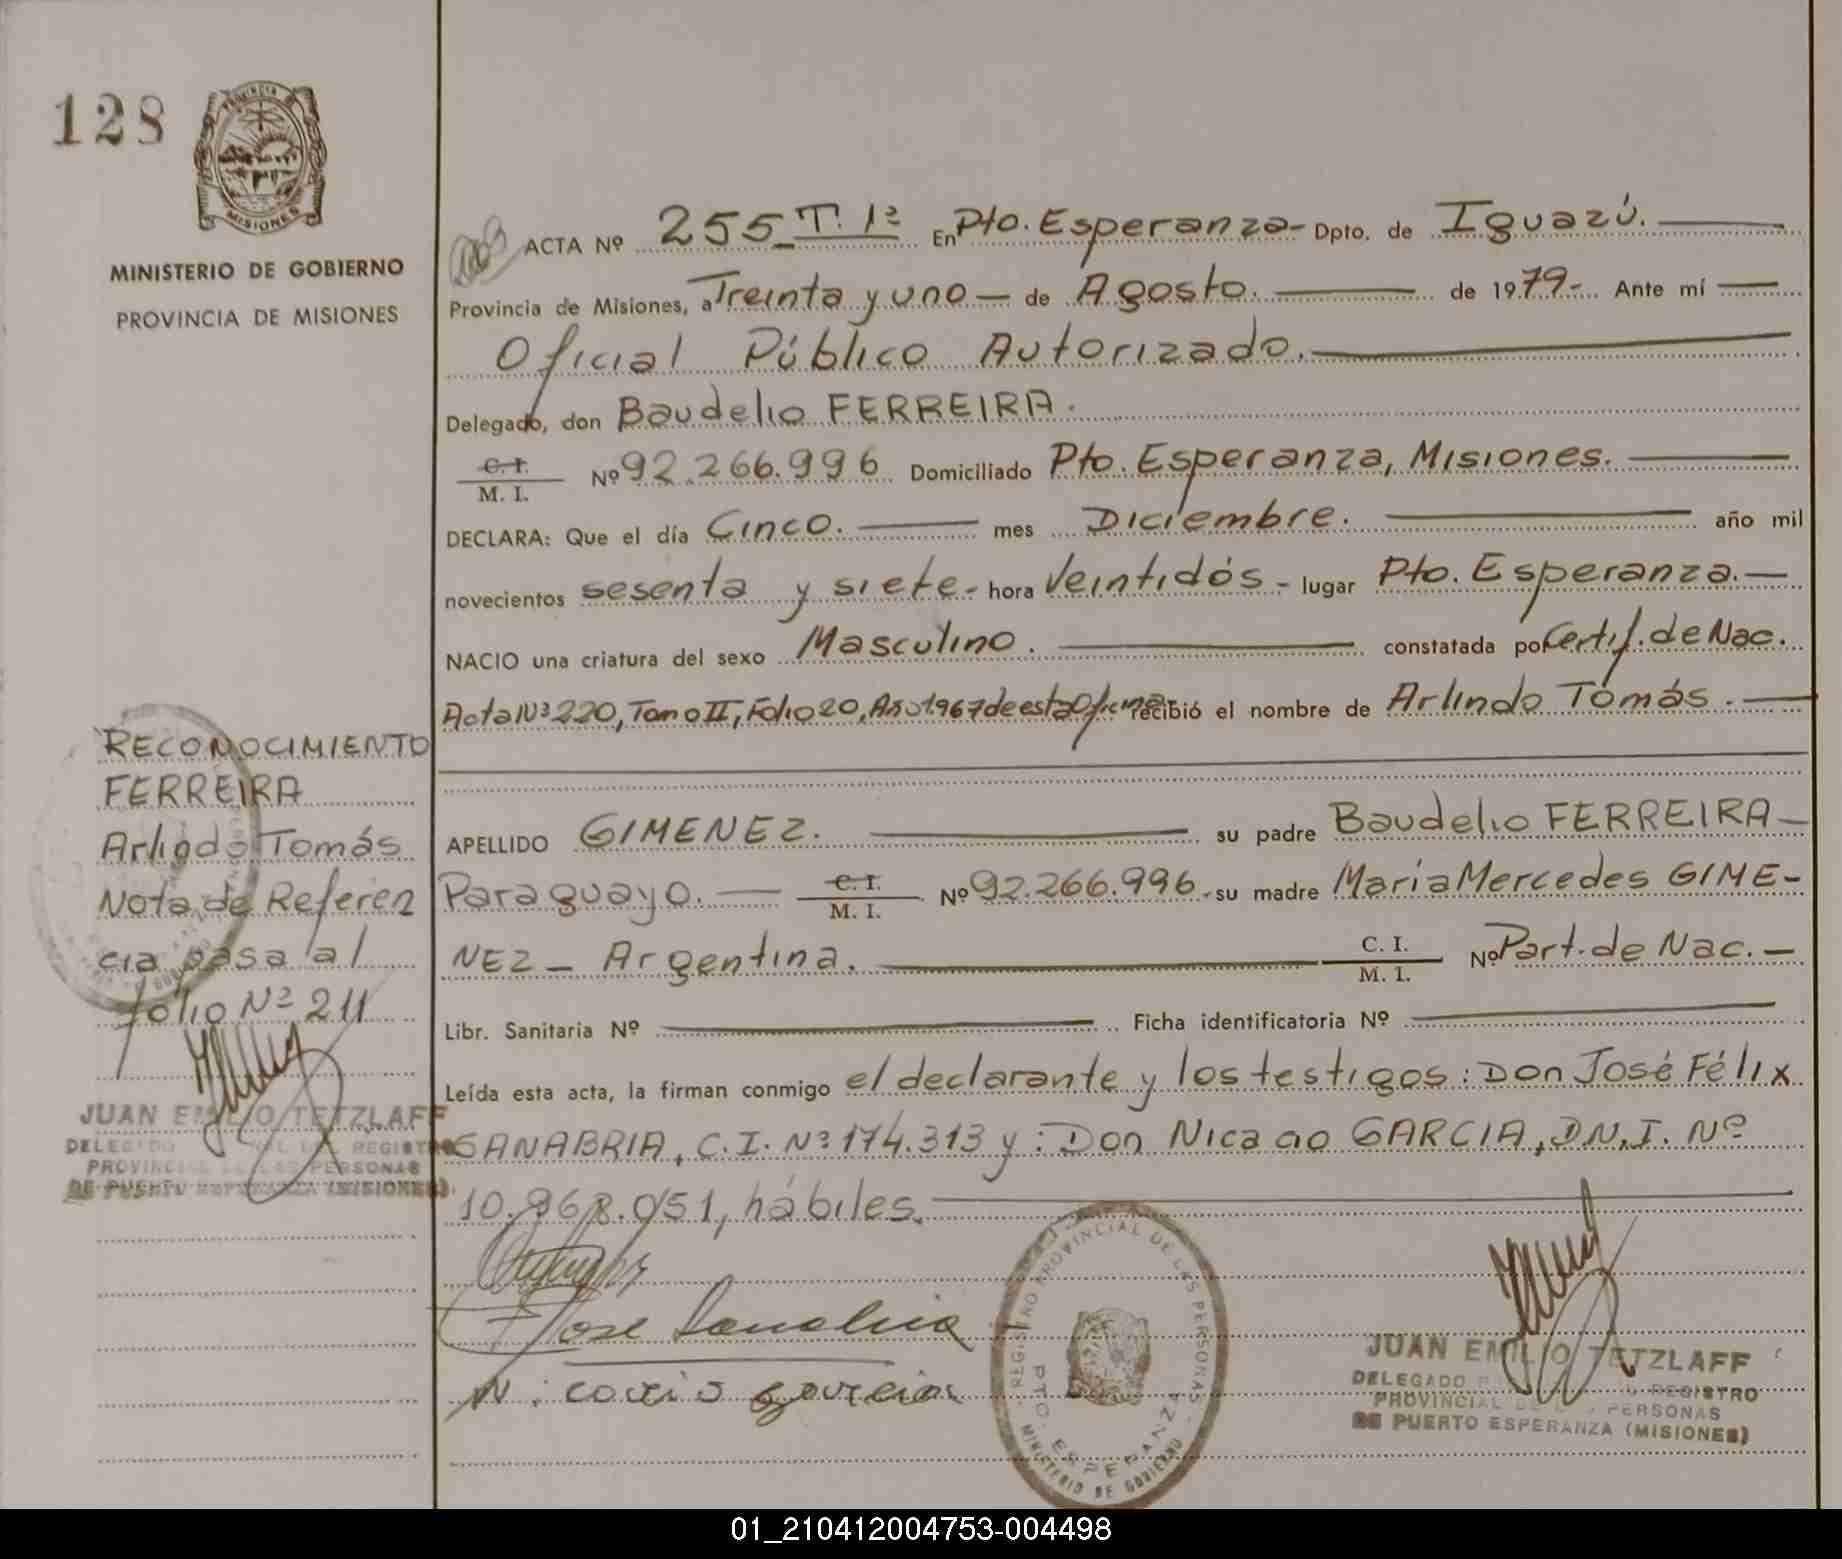 128
PROVINCIA DE
MISIONES
MINISTERIO DE GOBIERNO
PROVINCIA DE MISIONES
ACTA Nº 255_T. 1º En Pto. Esperanza- Dpto. de Iguazú.
Provincia de Misiones, a Treinta y uno — de Agosto. de 1979.- Ante mí
Oficial Público Autorizado.
Delegado, don Baudelio FERREIRA.
C. I.
M. I. Nº 92.266.996 Domiciliado Pto. Esperanza, Misiones.
DECLARA: Que el día Cinco. mes Diciembre. año mil
novecientos sesenta y siete- hora Veintidós - lugar Pto. Esperanza.—
NACIO una criatura del sexo Masculino. constatada por Certif. de Nac.
Acta Nº 220, Tomo II, Folio 20, Año 1967 de esta Oficina recibió el nombre de Arlindo Tomás.
APELLIDO GIMENEZ. su padre Baudelio FERREIRA—
Paraguayo. C. I.
M. I. Nº 92.266.996.- su madre María Mercedes GIME-
NEZ — Argentina. C. I.
M. I. Nº Part. de Nac. —
Libr. Sanitaria Nº Ficha identificatoria Nº
Leída esta acta, la firman conmigo el declarante y los testigos: Don José Félix
SANABRIA, C.I. Nº 174.313 y: Don Nicacio GARCIA, D.N.I. Nº
10.868.051, hábiles.
RECONOCIMIENTO
FERREIRA
Arlindo Tomás
Nota de Referen
cia pasa al
folio Nº 211
JUAN EMILIO TETZLAFF
DELEGADO REGISTRO
PROVINCIAL DE LAS PERSONAS
DE PUERTO ESPERANZA (MISIONES)
Jose Sanabria
REGISTRO PROVINCIAL DE LAS PERSONAS
PTO. ESPERANZA
MINISTERIO DE GOBIERNO
JUAN EMILIO TETZLAFF
DELEGADO REGISTRO
PROVINCIAL DE LAS PERSONAS
DE PUERTO ESPERANZA (MISIONES)
01_210412004753-004498